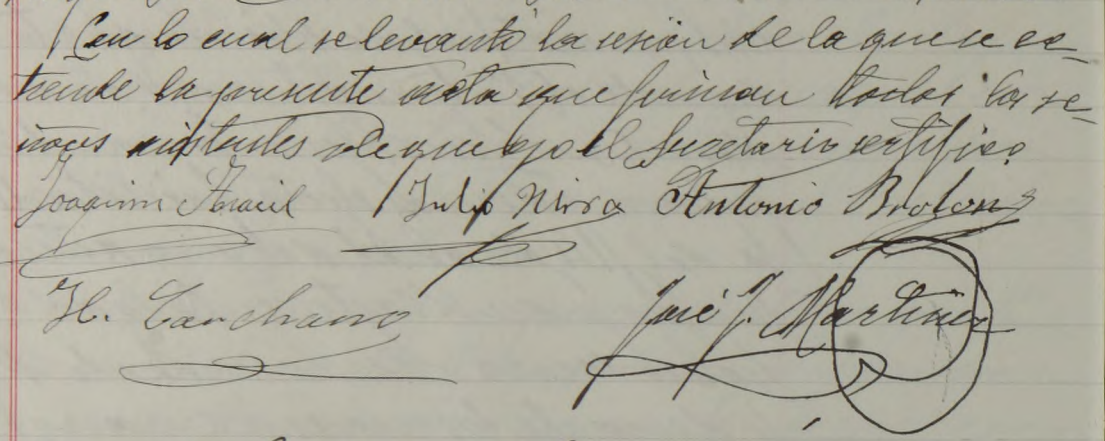 Con lo cual se levantó la sesión de la que se ex-
tiende la presente acta que firman todos los se-
ñores asistentes de que yo el Secretario certifico.
Joaquin Aracil Julio Mira Antonio Brotons
H. Canchano
José J. Martinez